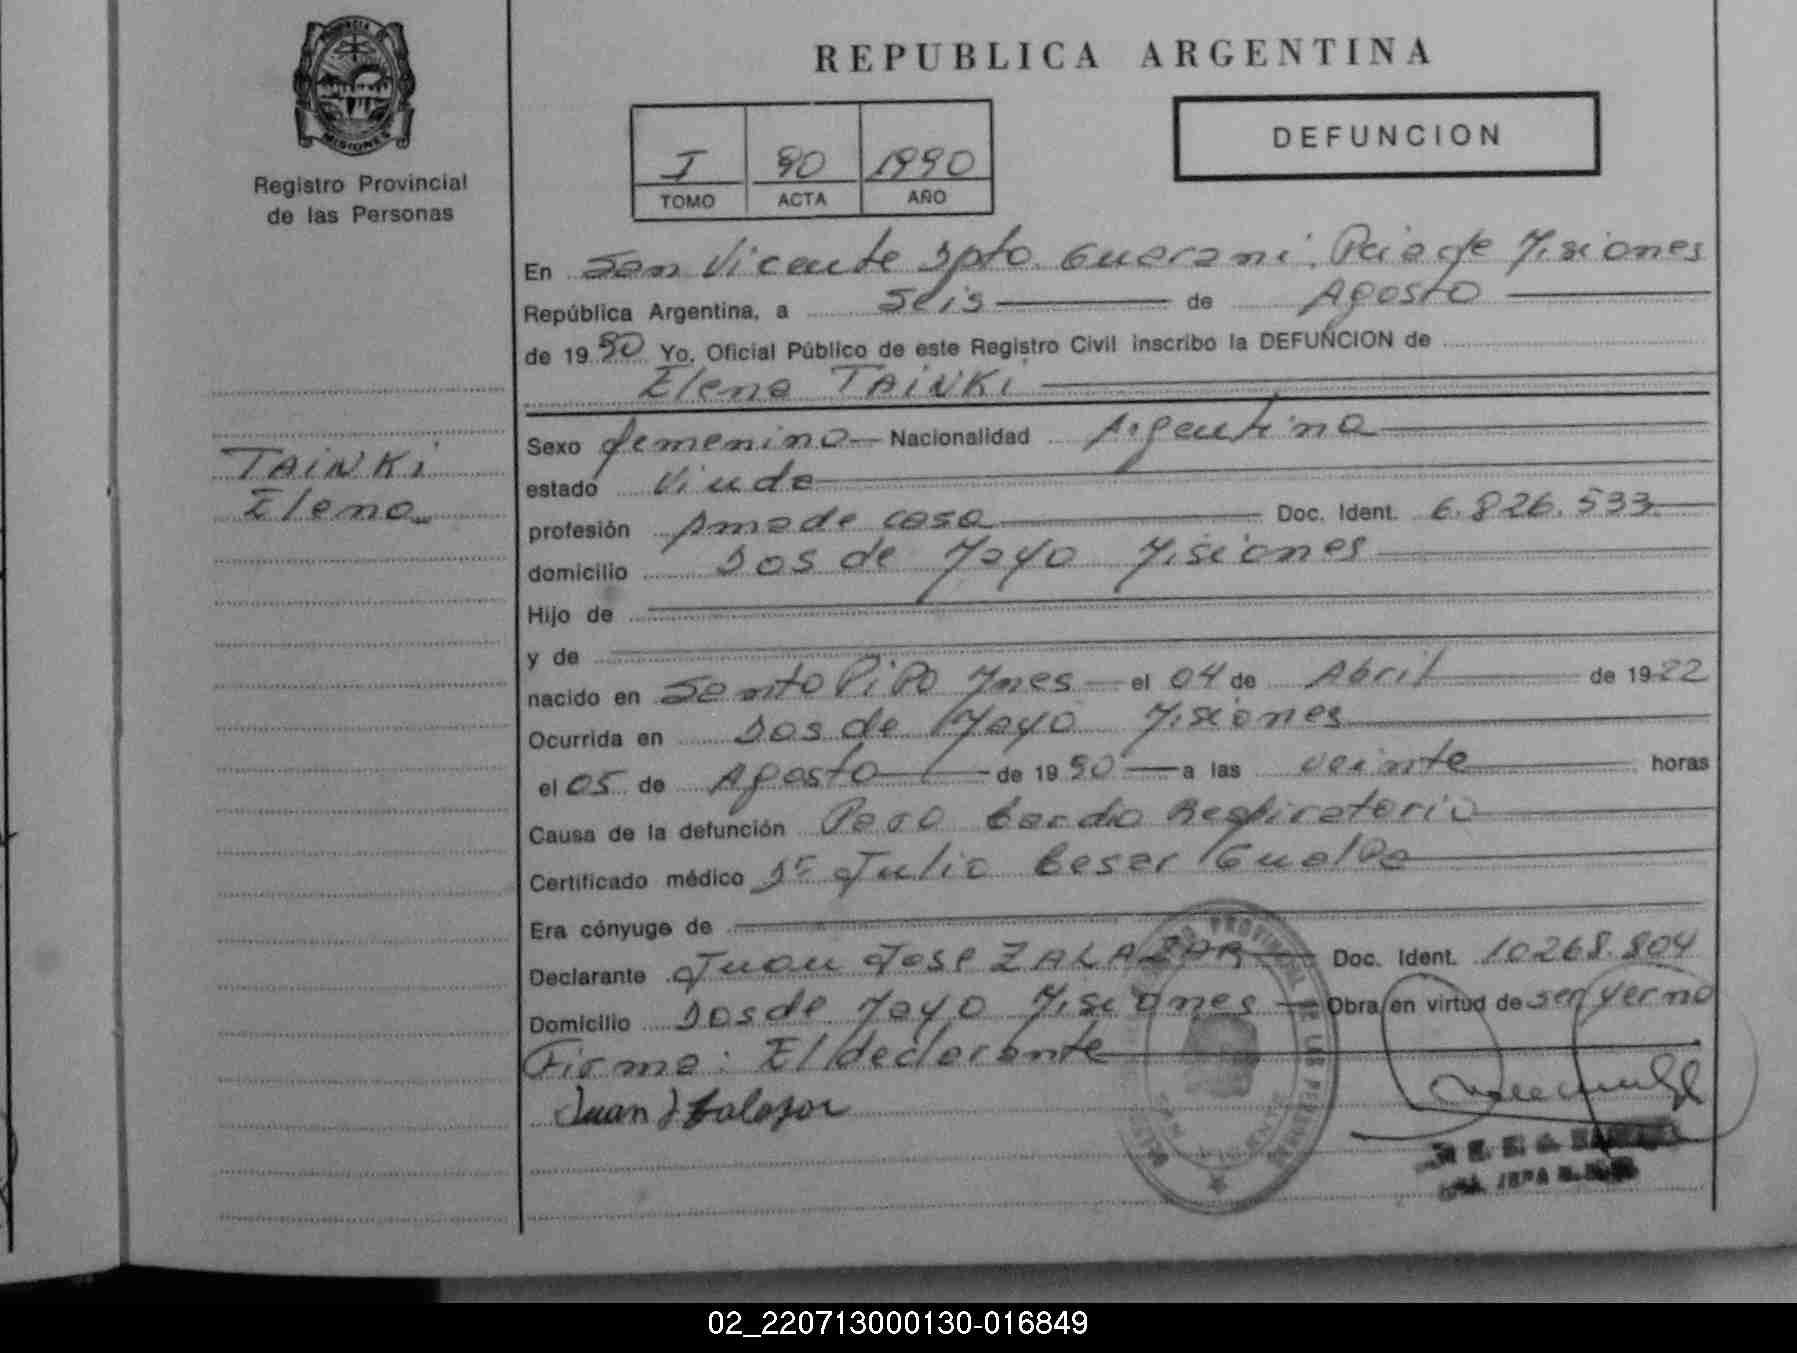 PROVINCIA DE
MISIONES
Registro Provincial
de las Personas
REPUBLICA ARGENTINA
I 90 1990
TOMO ACTA AÑO
DEFUNCION
En San Vicente Dpto. Guarani. Pcia de Misiones
República Argentina, a Seis de Agosto
de 1990 Yo, Oficial Público de este Registro Civil inscribo la DEFUNCION de
Elena TAINKI
TAINKI
Elena
Sexo femenino Nacionalidad Argentina
estado Viuda
profesión Ama de casa Doc. Ident. 6.826.533
domicilio Dos de Mayo Misiones
Hijo de
y de
nacido en Santo PiPo Mnes el 04 de Abril de 1922
Ocurrida en Dos de Mayo Misiones
el 05 de Agosto de 1990 a las veinte horas
Causa de la defunción Paro Cardio Respiratorio
Certificado médico Dr Julio Cesar
Era cónyuge de
Declarante Juan Jose ZALAZAR Doc. Ident. 10.268.804
Domicilio Dos de Mayo Misiones Obra en virtud de ser yerno
Firma: El declarante
Juan J Salazar
02_220713000130-016849